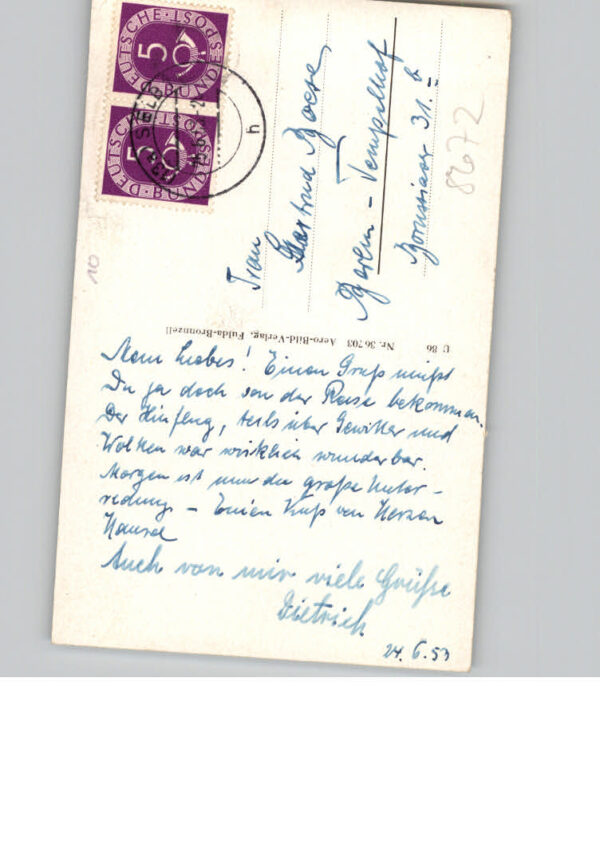 Mein Liebes! Einen Gruß mußt
Du ja doch von der Reise bekommen.
Der Hinflug, teils über Gewitter und
Wolken war wirklich wunderbar.
Morgen ist nun die große Unter-
redung. – Einen Kuß von Herzen
Auch von mir viele Grüße
Dietrich
24.6.53
Frau
Berlin – Tempelhof
31.
U 86 Nr. 36 703 Aero-Bild-Verlag, Fulda-Bronnzell
DEUTSCHE BUNDESPOST
5
DEUTSCHE BUNDESPOST
5
8672
10